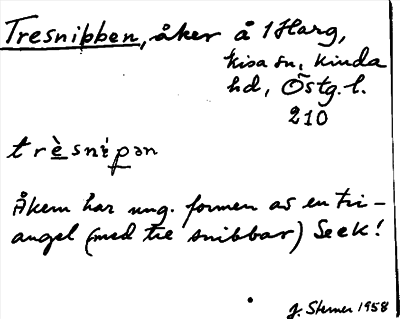 Tresnibben, åker å 1 Harg,
Kisa sn, Kinda
hd, Östg. l.
210
trèsnípən
Åkern har ung. formen av en tri-
angel (med tre snibbar) Se ek!
J. Sterner 1958